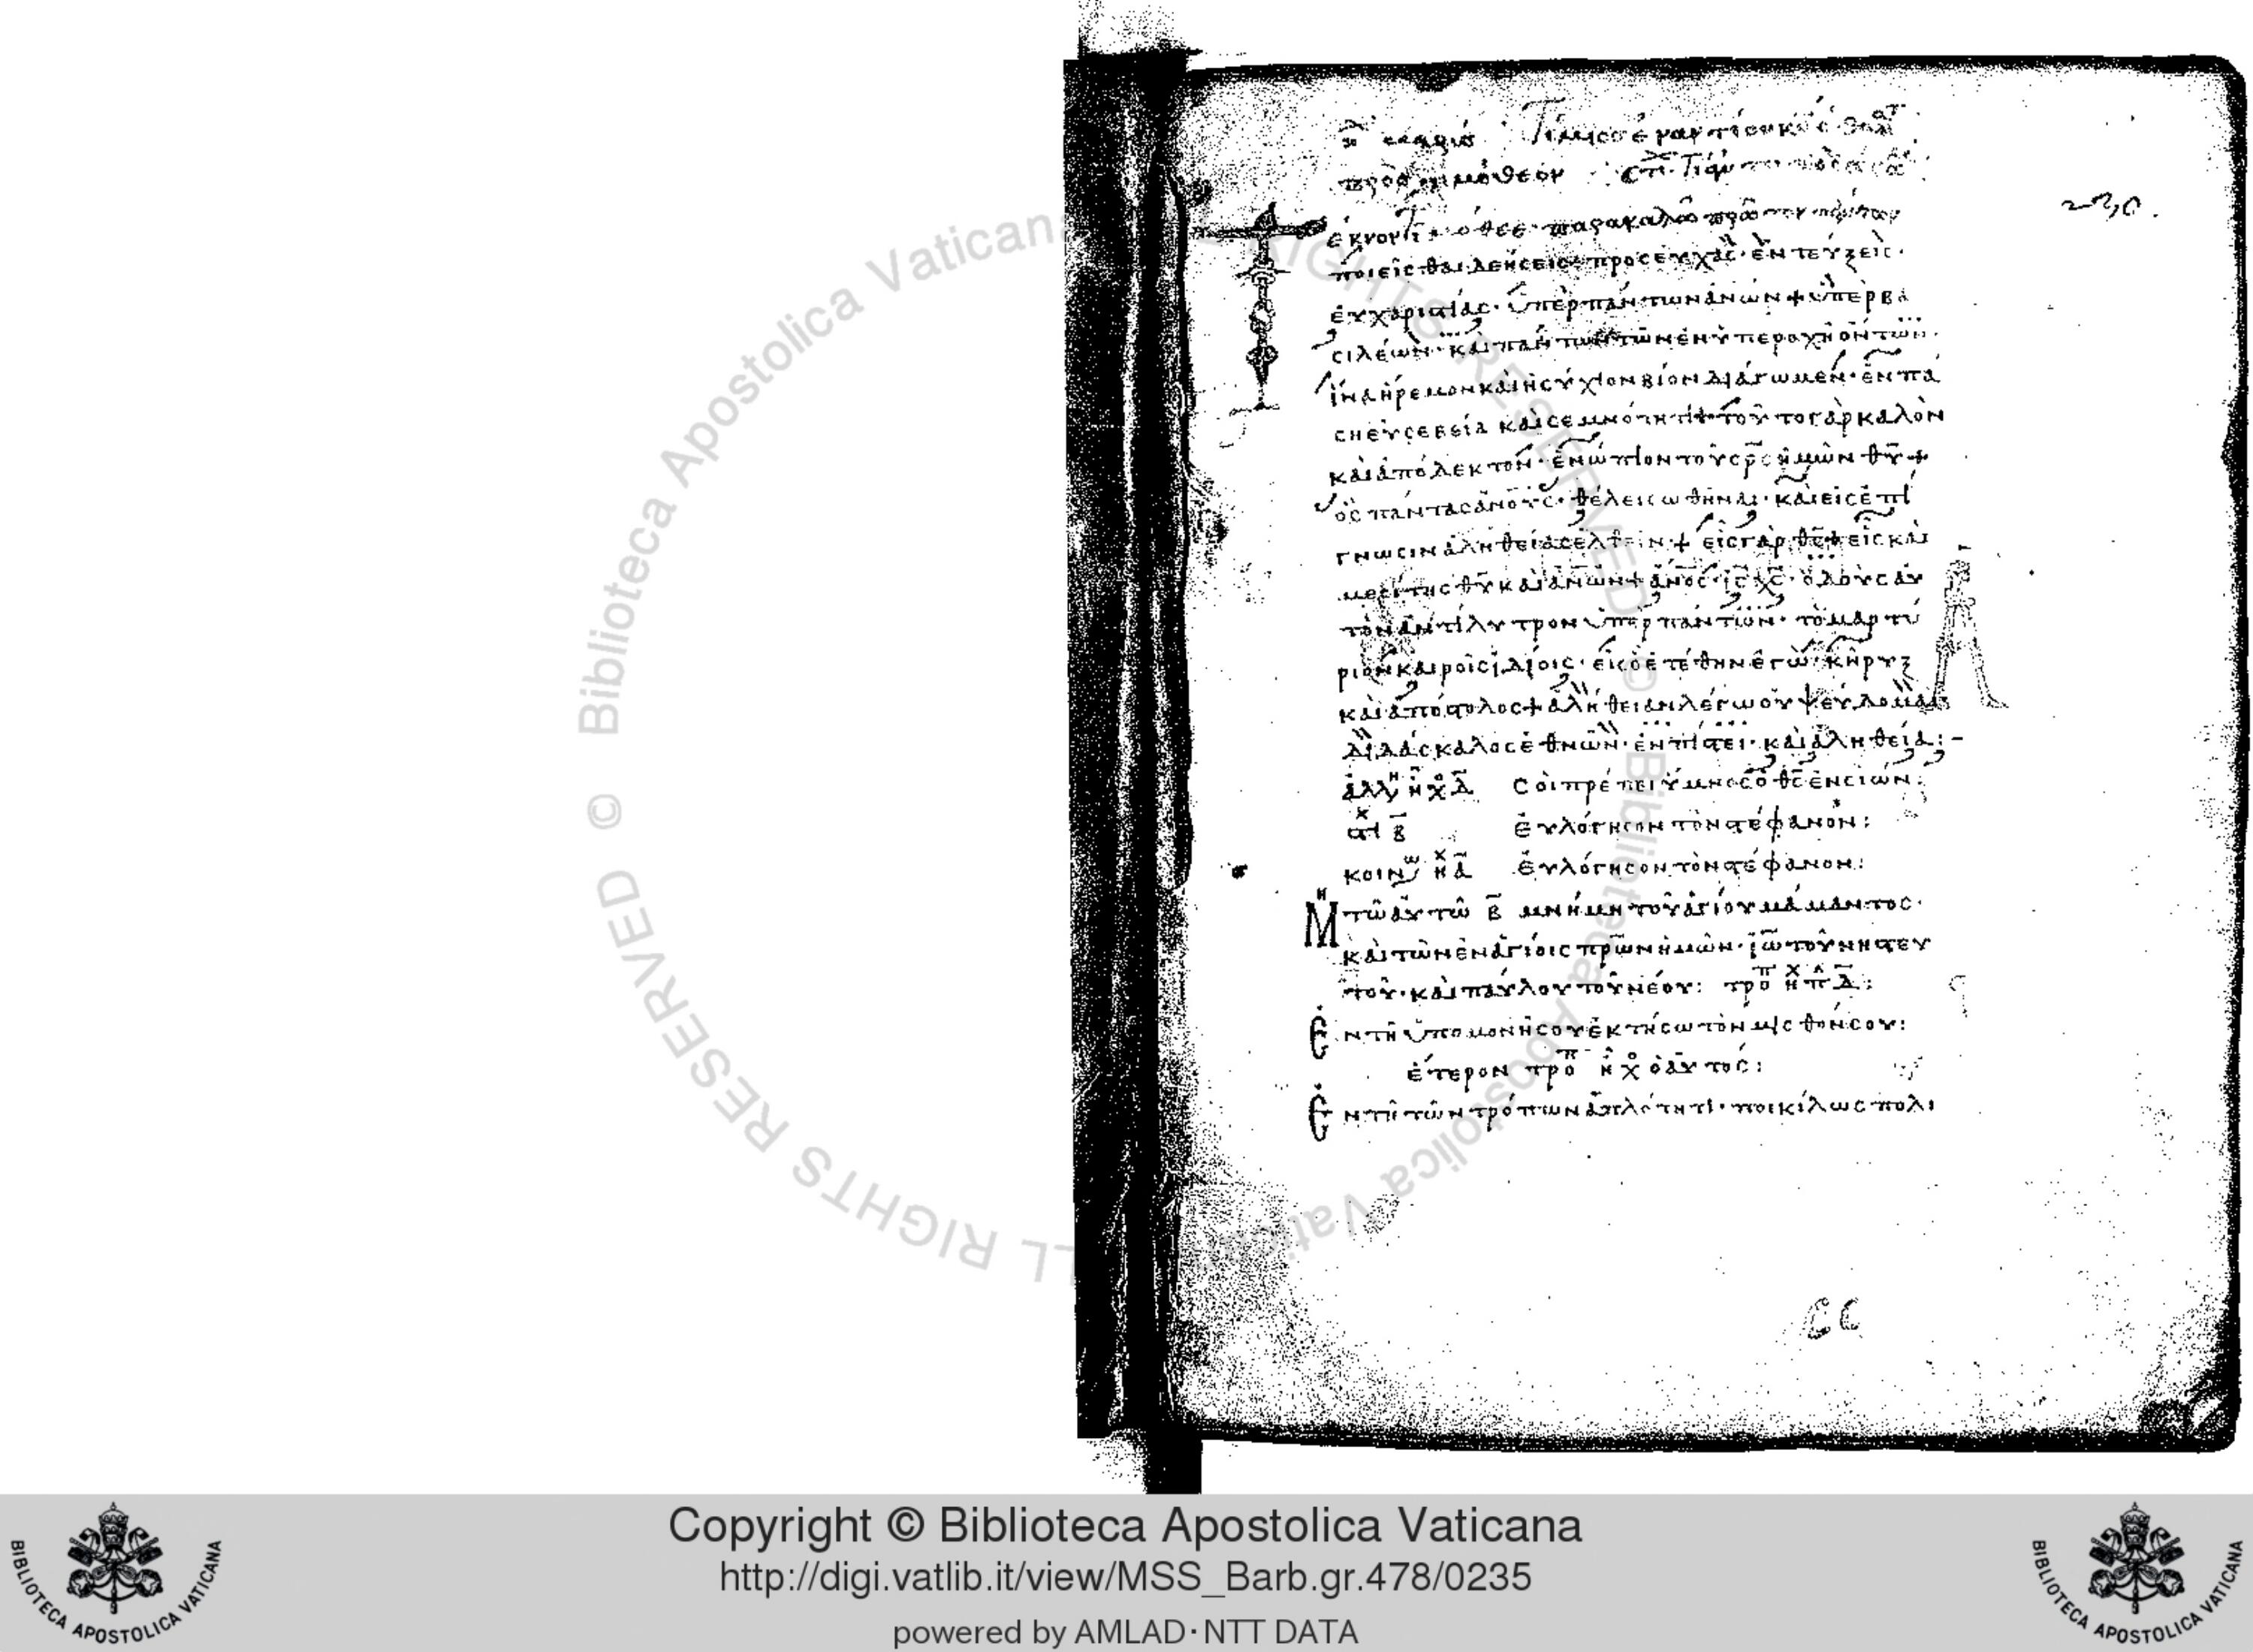 Τίμιος ἐναντίον κυ ὁ θαⷩ
πρὸς τιμόθεον
230.
έκνον Τιμόθεε παρακαλῶ πρῶτον πάντων
ποιεῖσθαι δεήσεις προσευχὰς· ἐντεύξεις·
ἐυχαριστίας· ὑπὲρ πάντων ἀνων + ὑπὲρ βα
σιλέων· καὶ πάντων τῶν ἐν ὑπεροχῆ ὄντων·
ἵνα ἤρεμον καὶ ἡσύχιον βίον διάγωμεν· ἐν πα
ση ἐυσεβεία καὶ σεμνότητι + τοῦτο γὰρ καλὸν
καὶ ἀπόδεκτον· ἐνώπιον τοῦ σρς ἡμῶν θυ +
ὃς πάντας ἀνους· θέλει σωθῆναι· καὶ εἰς ἐπί
γνωσιν ἀληθείας ἐλθεῖν + εἷς γὰρ θς + εἷς καὶ
μεσίτης θυ καὶ ἀνων + ἀνος· ις χς· ὁ δοὺς ἑαυ
τὸν ἀντίλυτρον ὑπὲρ πάντων· τὸ μαρτύ
ριον καιροῖς ἰδίοις· εἰς ὃ ἐτέθην ἐγὼ· κῆρυξ
καὶ ἀπόστολος + ἀλήθειαν λέγω οὐ ψεύδομαι
διδάσκαλος ἐθνῶν· ἐν πίστει· καὶ ἀληθεία:-
ἀλλη ηχ α Σοὶ πρέπει ὕμνος ὁ θς ἐν σιών:
στι β Ἐυλόγησον τὸν στέφανον:
κοινω ηχ α Ἐυλόγησον τὸν στέφανον:
Μη τῶ ἀυτῶ β μνήμη τοῦ ἁγίου μάμαντος·
καὶ τῶν ἐν ἁγίοις πρων ἡμῶν· ιω τοῦ νηστευ
τοῦ· καὶ παύλου τοῦ νέου: τροπ ηχ π δ:
Ἐν τῆ ὑπομονῆ σου ἐκτήσω τὸν μισθόν σου:
ἕτερον τροπ ηχο ὁ ἀυτός:
Ἐν τῆ τῶν τρόπων ἁπλότητι· ποικίλως πολι
Copyright © Biblioteca Apostolica Vaticana
http://digi.vatlib.it/view/MSS_Barb.gr.478/0235
powered by AMLAD·NTT DATA
BIBLIOTECA APOSTOLICA VATICANA
BIBLIOTECA APOSTOLICA VATICANA